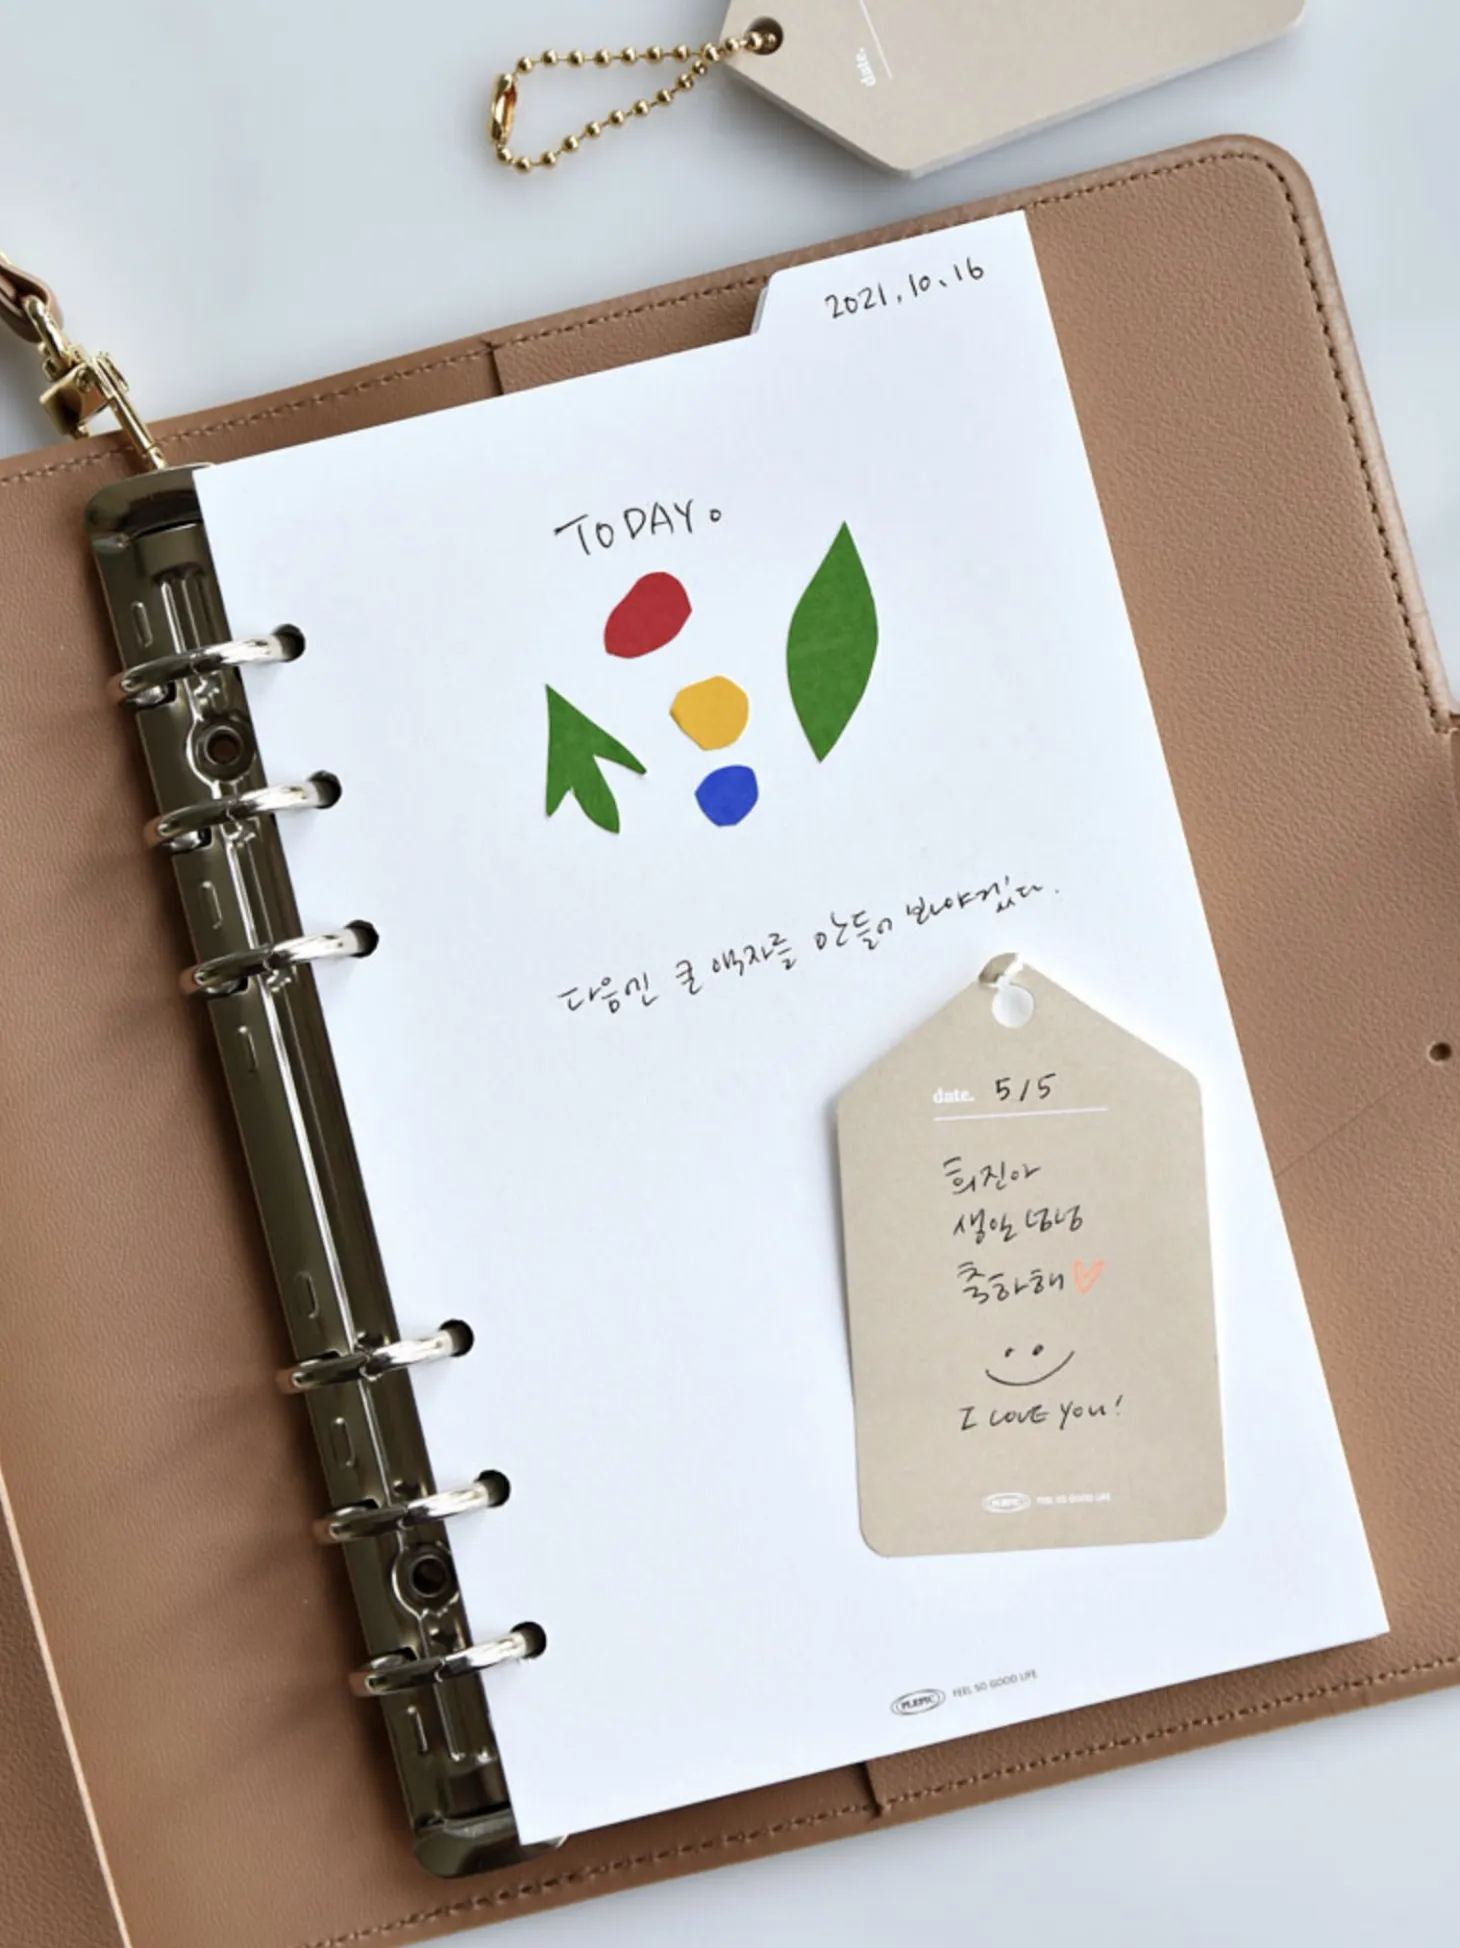 date.
2021.10.16
TODAY。
다음엔 큰 액자를 만들어 봐야겠다.
date. 5/5
희진아
생일 넘넘
축하해♡
I LOVE YOU!
PLEPIC FEEL SO GOOD LIFE
PLEPIC FEEL SO GOOD LIFE